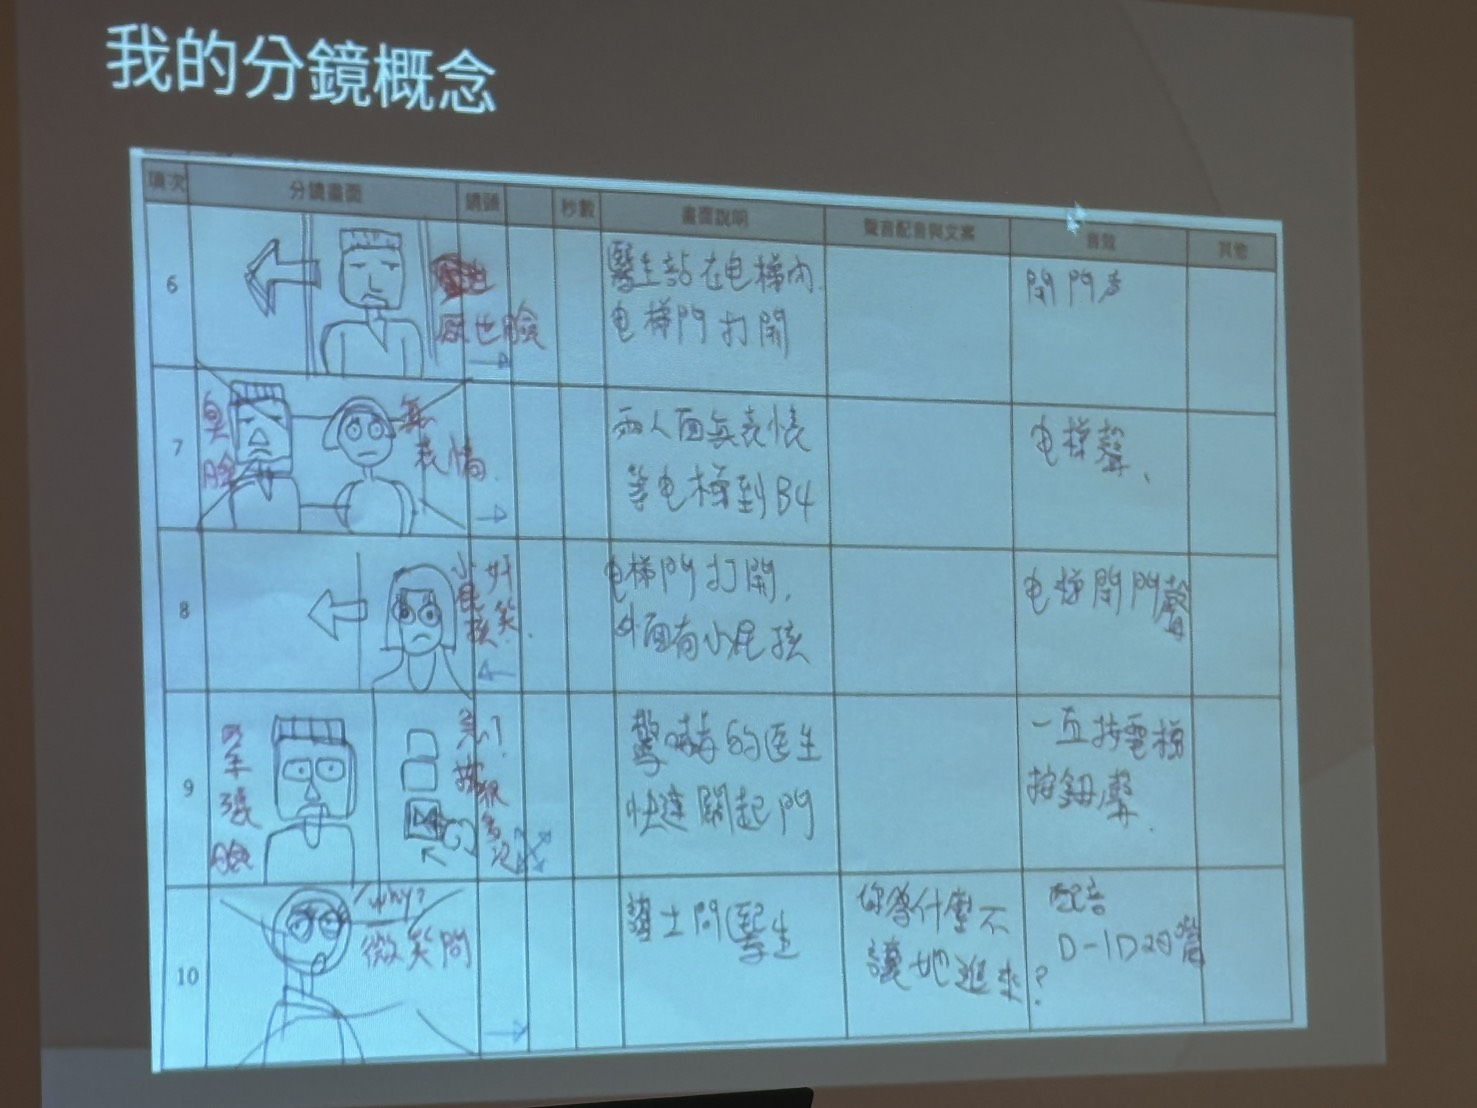 我的分鏡概念
項次 分鏡畫面 鏡頭 秒數 畫面說明 聲音配音與文案 音效 其他
6
臉
醫生站在电梯內
电梯門打開
開門声
7
臭
臉
無
表情
兩人面無表情
等电梯到B4
电梯聲、
8
奸
笑
电梯門打開,
外面有小屁孩
电梯開門聲
9
緊
張
臉
急了
按
很
多
次
驚嚇的医生
快速關起門
一直按電梯
按鈕聲.
10
why?
微笑問
護士問醫生
你為什麼不
讓她進來?
配音
D-ID